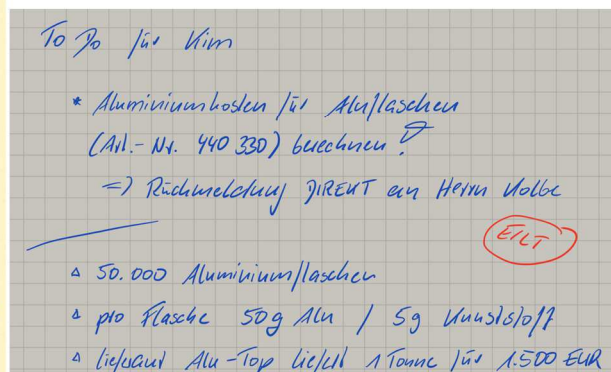 To Do für Kim
* Aluminiumkosten für Aluflaschen
(Art.-Nr. 440 330) berechnen!
=> Rückmeldung DIREKT an Herrn Kolbe
EILT
△ 50.000 Aluminiumflaschen
△ pro Flasche 50g Alu / 5g Kunststoff
△ Lieferant Alu-Top liefert 1 Tonne für 1.500 EUR